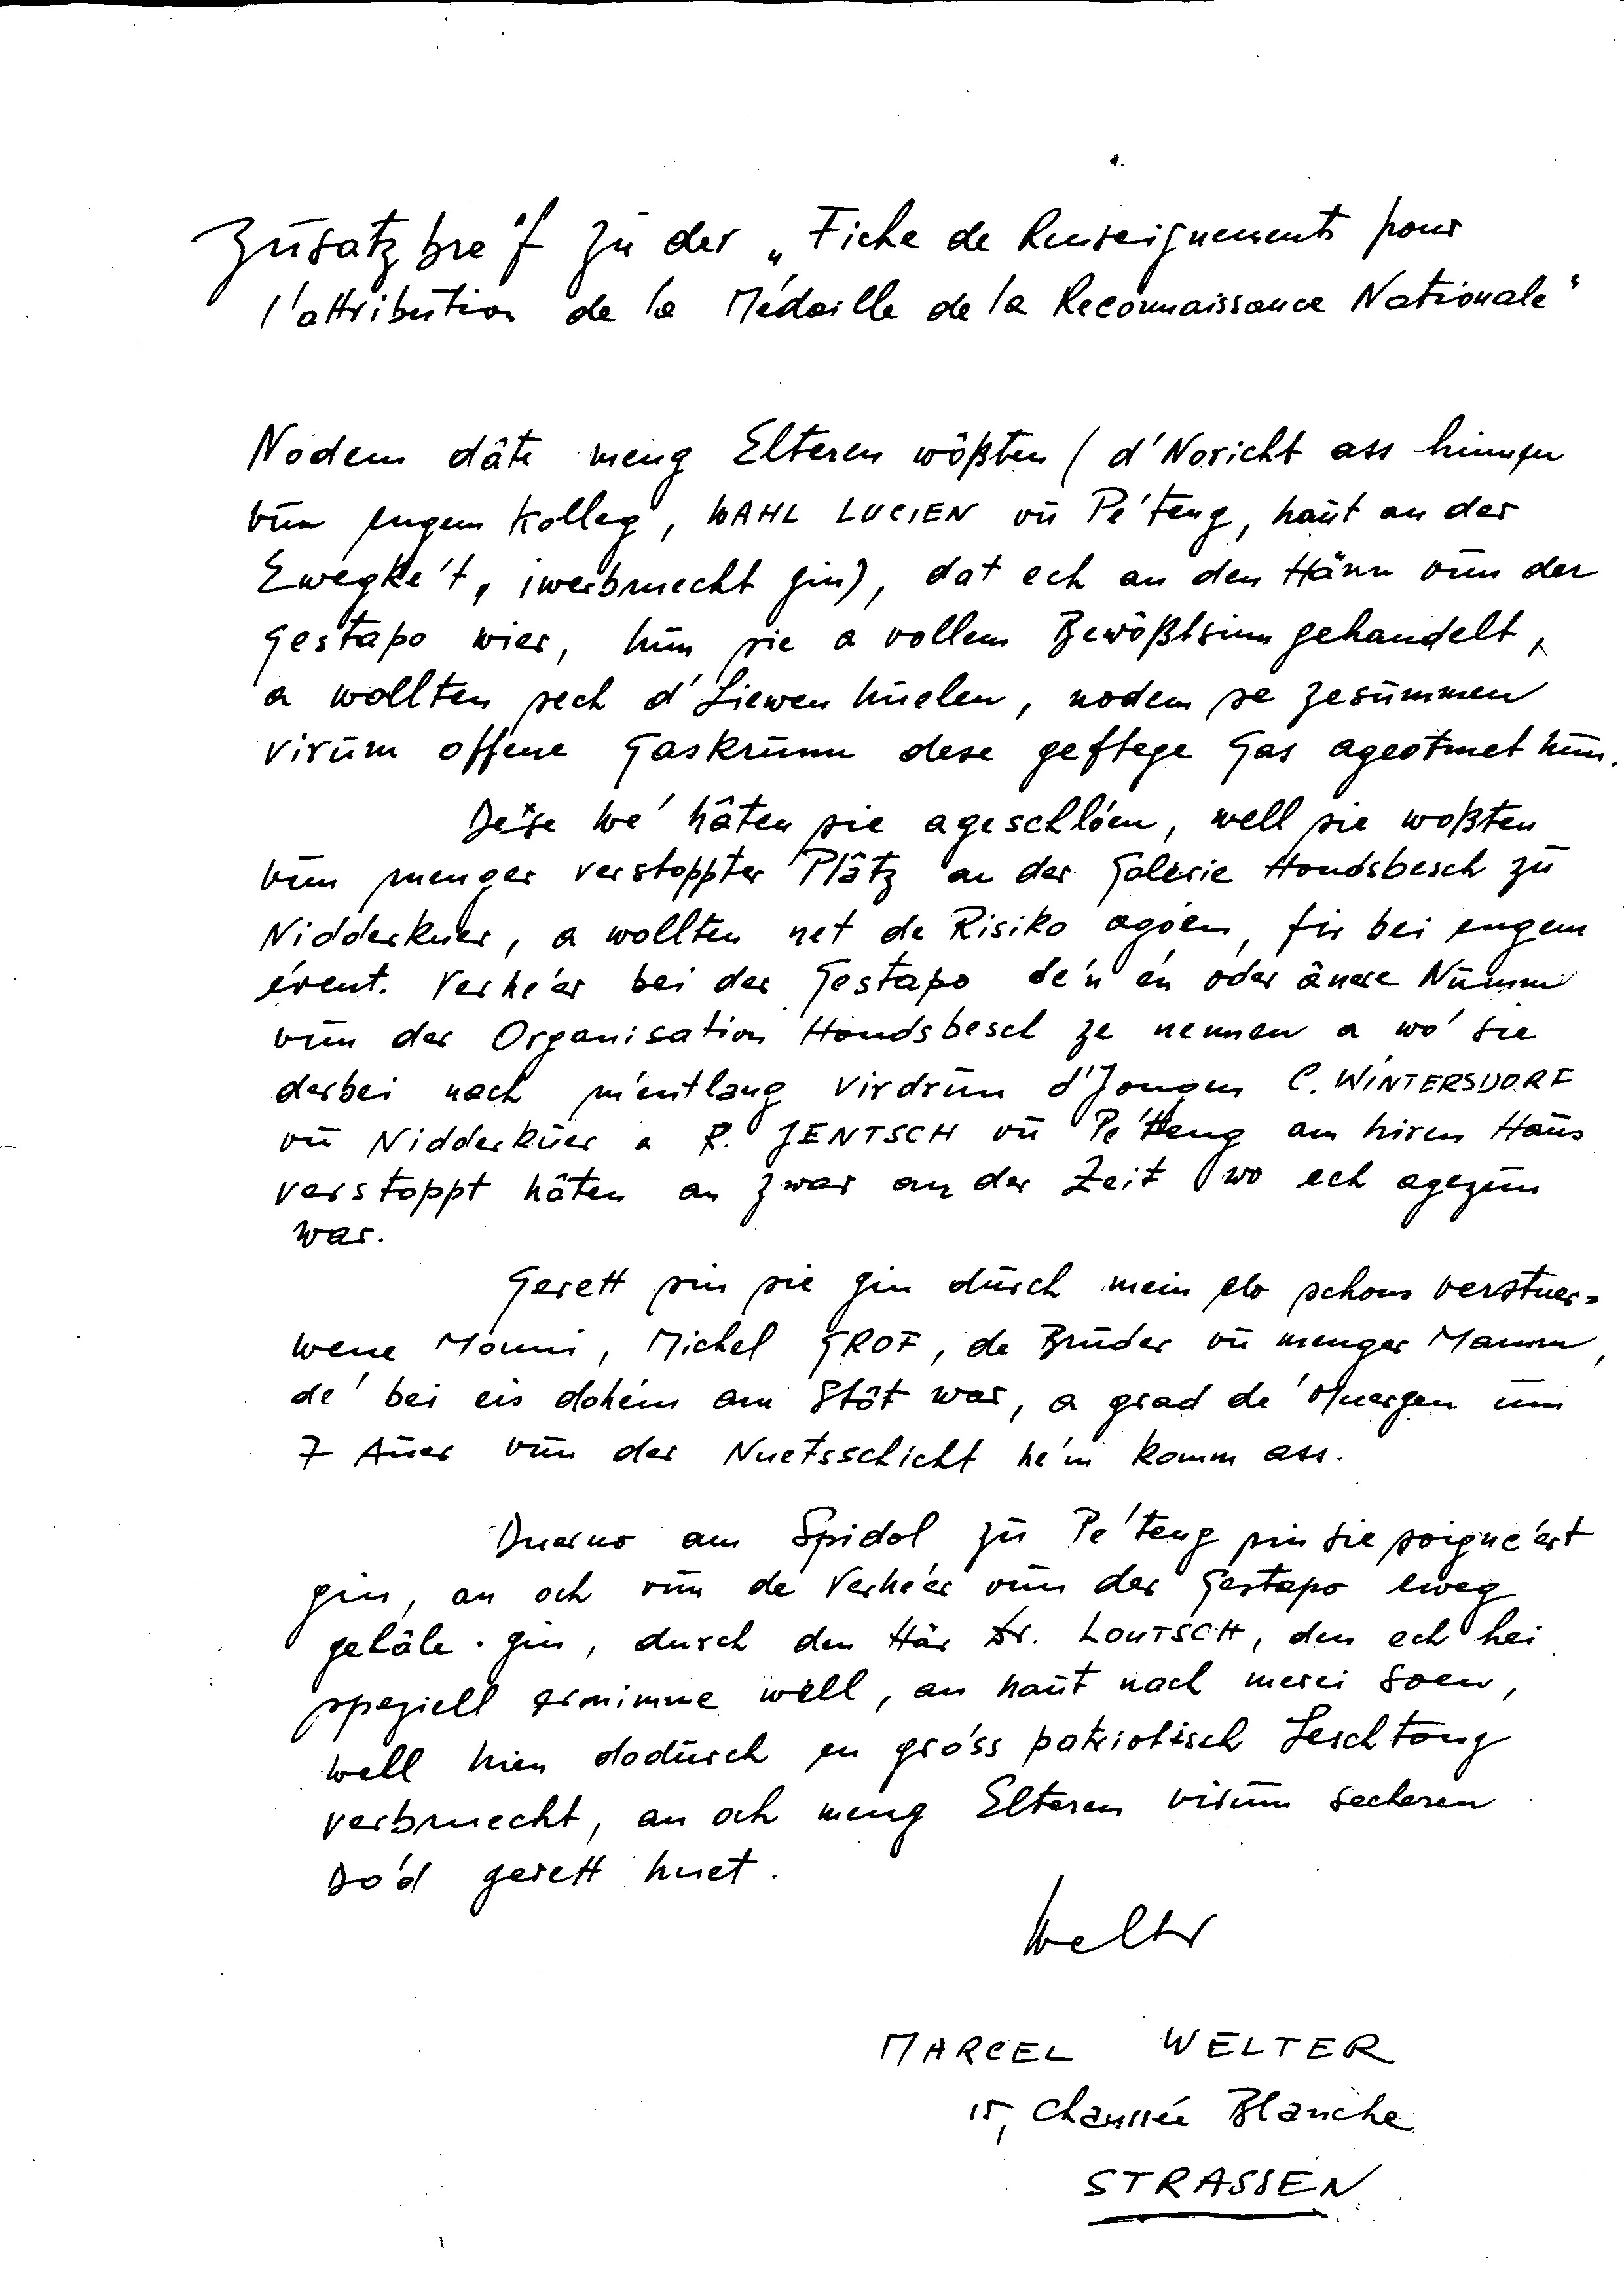 Zusatzbre'f zu der „Fiche de Renseignements pour
l'attribution de la Médaille de la Reconnaissance Nationale"
Nodem däte meng Elteren wößten (d'Noricht ass hinnen
vun engem Kolleg, WAHL LUCIEN vu Pe'teng, haut an der
Ewegke't, iwerbruecht gin), dat ech an den Hänn vun der
Gestapo wier, hun sie a vollem Bewößtsinn gehandelt,
a wollten sech d'Liewen huelen, nodem se zesummen
virum offene Gaskrunn dese geftege Gas ageotmet hun.
Dese we' hâten sie ageschlóen, well sie woßten
vun menger verstoppter Plâtz an der Galerie Hondsbesch zu
Nidderkuer, a wollten net de Risiko agóen, fir bei engem
évent. Verhe'er bei der Gestapo de'n én oder ânere Numm
vun der Organisation Hondsbesch ze nennen a wo' sie
derbei nach méintlang virdrun d'Jongen C. WINTERSDORF
vu Nidderkuer a R. JENTSCH vu Pe'teng am hiren Haus
verstoppt hâten an zwar an der Zeit wo ech agezun
war.
Gerett sin sie gin durch mein elo schons verstuer=
wene Monni, Michel GROF, de Bruder vu menger Mamm,
de' bei eis dohém am Stôt war, a grad de' Muergen um
7 Auer vun der Nuetsschicht he'm komm ass.
Duerno am Spidol zu Pe'teng sin sie soigne'ert
gin, an och vun de Verhe'er vun der Gestapo eweg
gehâle gin, durch den Här Dr. LOUTSCH, den ech hei
speziell ernimme well, an haut nach merci soen,
well hien dodurch en gro'ss patriotisch Leschtong
verbruecht, an och meng Elteren virum secheren
Do'd gerett huet.
Welter
MARCEL WELTER
15, Chaussée Blanche
STRASSEN